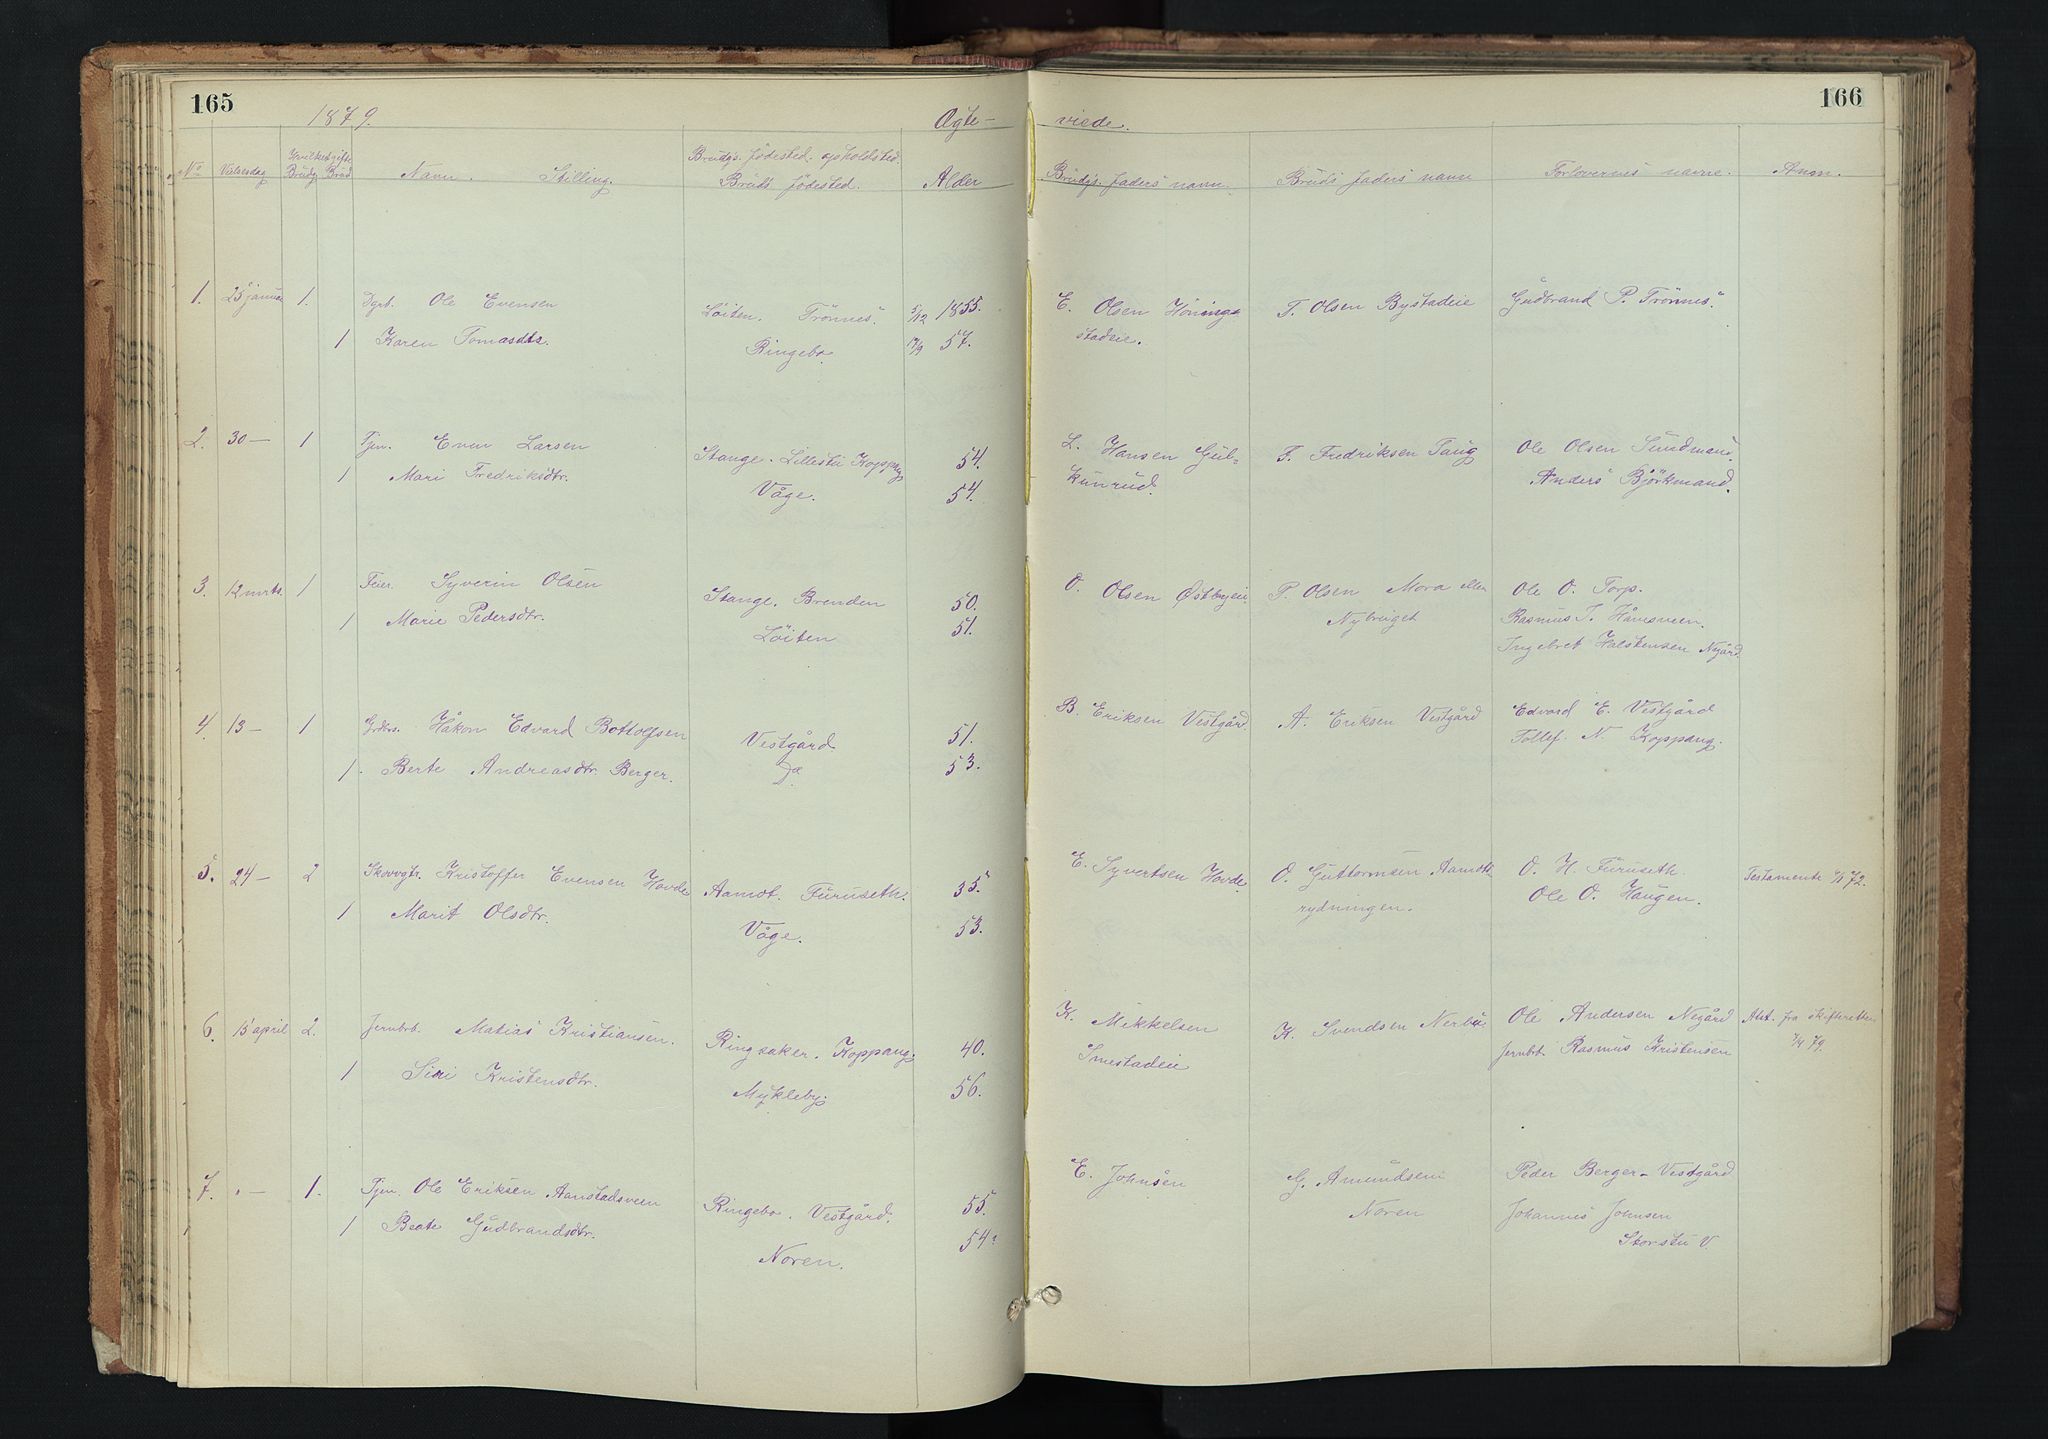 165
1879.
Ægte-
viede.
166
No
Vielsesdag
Hvilket gifte
Brudg. Brud
Navn. Stilling.
Brudg's fødested. opholdsted.
Bruds fødested.
Alder
Brudg's. faders navn.
Bruds faders navn
Forlovernes navne.
Anm.
1. 25 januar 1. Dgrb. Ole Evensen Löiten. Trönnes. 5/12 1855. E. Olsen Höninga- T. Olsen Bystadeie Gudbrand P. Trönnes.
1 Karen Tomasdtr. Ringebo. 57. stadeie.
2. 30 — 1 Tjen. Even Larsen Stange. Lillestu Koppang 54. L. Hansen Gul- F. Fredriksen Taug Ole Olsen Sundmand.
1 Mari Fredriksdtr. Våge. 54. kunrud. Anders Björkmand.
3. 12 mrts. 1 Feier. Syverin Olsen Stange. Brenden 50. O. Olsen Østbyeie P. Olsen Mora eller Ole O. Torp.
1 Marie Pedersdtr. Löiten 51. Nybruget Rasmus T. Håmsveen.
Ingebret Halstensen Negård.
4. 13 — 1 Grdbrs. Håkon Edvard Bottolfsen Vestgård 51. B. Eriksen Vestgård. A. Eriksen Vestgård Edvard E. Vestgård
1. Berte Andreasdtr. Berger. Do 53. Tollef. N. Koppang.
5. 24 — 2 Skovvgtr. Kristoffer Evensen Hovde Aamot. Furuseth. 35. E. Syvertsen Hovde. O. Guttormsen Aamodt- O. H. Furuseth. Testamente 72.
1 Marit Olsdtr. Våge. 53. rydningen. Ole O. Haugen.
6. 15 april 2. Jernbrb. Matias Kristiansen. Ringsaker. Koppang. 40. K. Mikkelsen K. Svendsen Nerbu Ole Andersen Negård Att. fra skifteretten
1 Siri Kristensdtr. Myklebyg. 56. Smestadeie Jernbb. Rasmus Kristensen 79.
7. " — 1. Tjen. Ole Eriksen Aanstadsveen Ringebo. Vestgård. 55. E. Johnsen G. Amundsen Peder Berger-Vestgård
1 Beate Gudbrandsdtr. Noren. 54. Noren Johannes Johnsen
Storstu V.